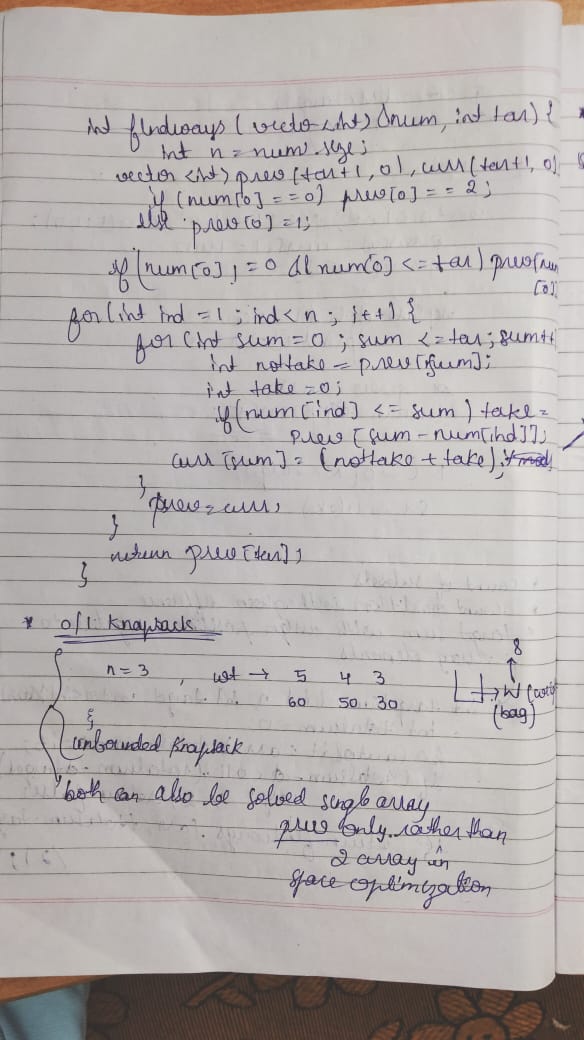 int findways ( vector <int> &num, int tar) {
int n = num.size;
vector <int> prev (tar+1, 0), curr (tar+1, 0)
if (num[0] == 0) prev[0] == 2;
else prev[0] = 1;
if (num[0] != 0 && num[0] <= tar) prev[num
[0]
for (int ind = 1 ; ind < n ; i++) {
for (int sum = 0 ; sum <= tar; sum++
int nottake = prev [sum];
int take = 0;
if (num [ind] <= sum ) take =
prev [sum - num[ind]];
curr [sum] = (nottake + take);
}
prev = curr;
}
return prev [tar];
}
* 0/1 Knapsack
8
n = 3 , wt → 5 4 3
→ W
60 50 30
(bag)
&
unbounded Knapsack
both can also be solved single array
prev only rather than
2 array in
space optimization